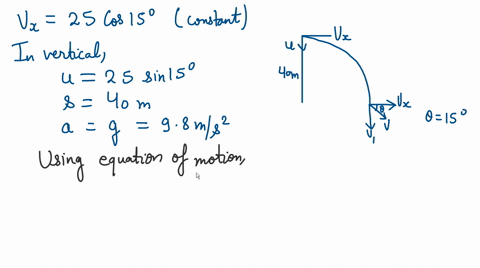 Vx = 25 Cos 15° (constant)
In vertical,
u = 25 sin 15°
s = 40 m
a = g = 9.8 m/s²
Using equation of motion,
u
Vx
40m
Vx
θ
V
V₁
θ = 15°